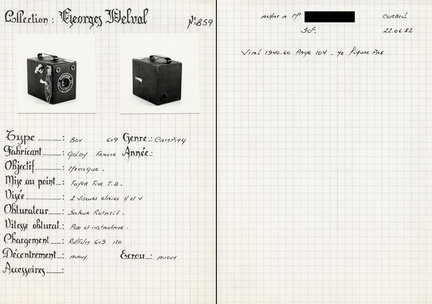 Collection : Georges Delval N° 859
Type : Box 6x9 Genre : Company
Fabricant : Goldy France Année :
Objectif : Menisque.
Mise au point : Foyer Fixe T.D.
Visée : 2 Viseurs clairs H et V
Obturateur : Secteur Rotatif.
Vitesse obturat. : Pose et instantané.
Chargement : Rollfilm 6x9 120
Décentrement : aucun. Ecrou : aucun
Accessoires :
acheté à Mr CORBEIL
30f. 22.06.82
Vial 1940.60 Page 104. Figure Pas